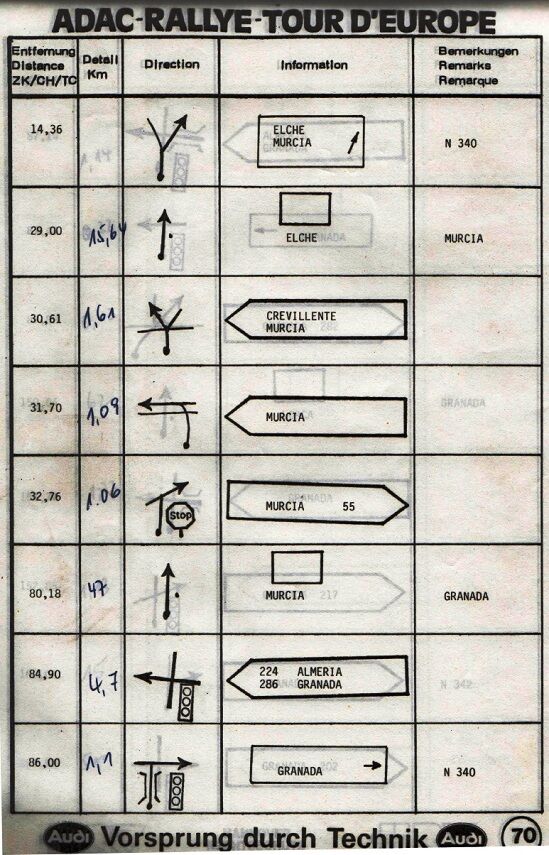 ADAC-RALLYE-TOUR D'EUROPE
Entfernung
Distance
ZK/CH/TC
Detail
Km
Direction
Information
Bemerkungen
Remarks
Remarque
14,36
ELCHE
MURCIA
N 340
29,00
15,64
ELCHE
MURCIA
30,61
1,61
CREVILLENTE
MURCIA
31,70
1,09
MURCIA
32,76
1.06
Stop
MURCIA 55
80,18
47
MURCIA
GRANADA
84,90
4,7
224 ALMERIA
286 GRANADA
86,00
1,1
GRANADA
N 340
Audi Vorsprung durch Technik Audi 70